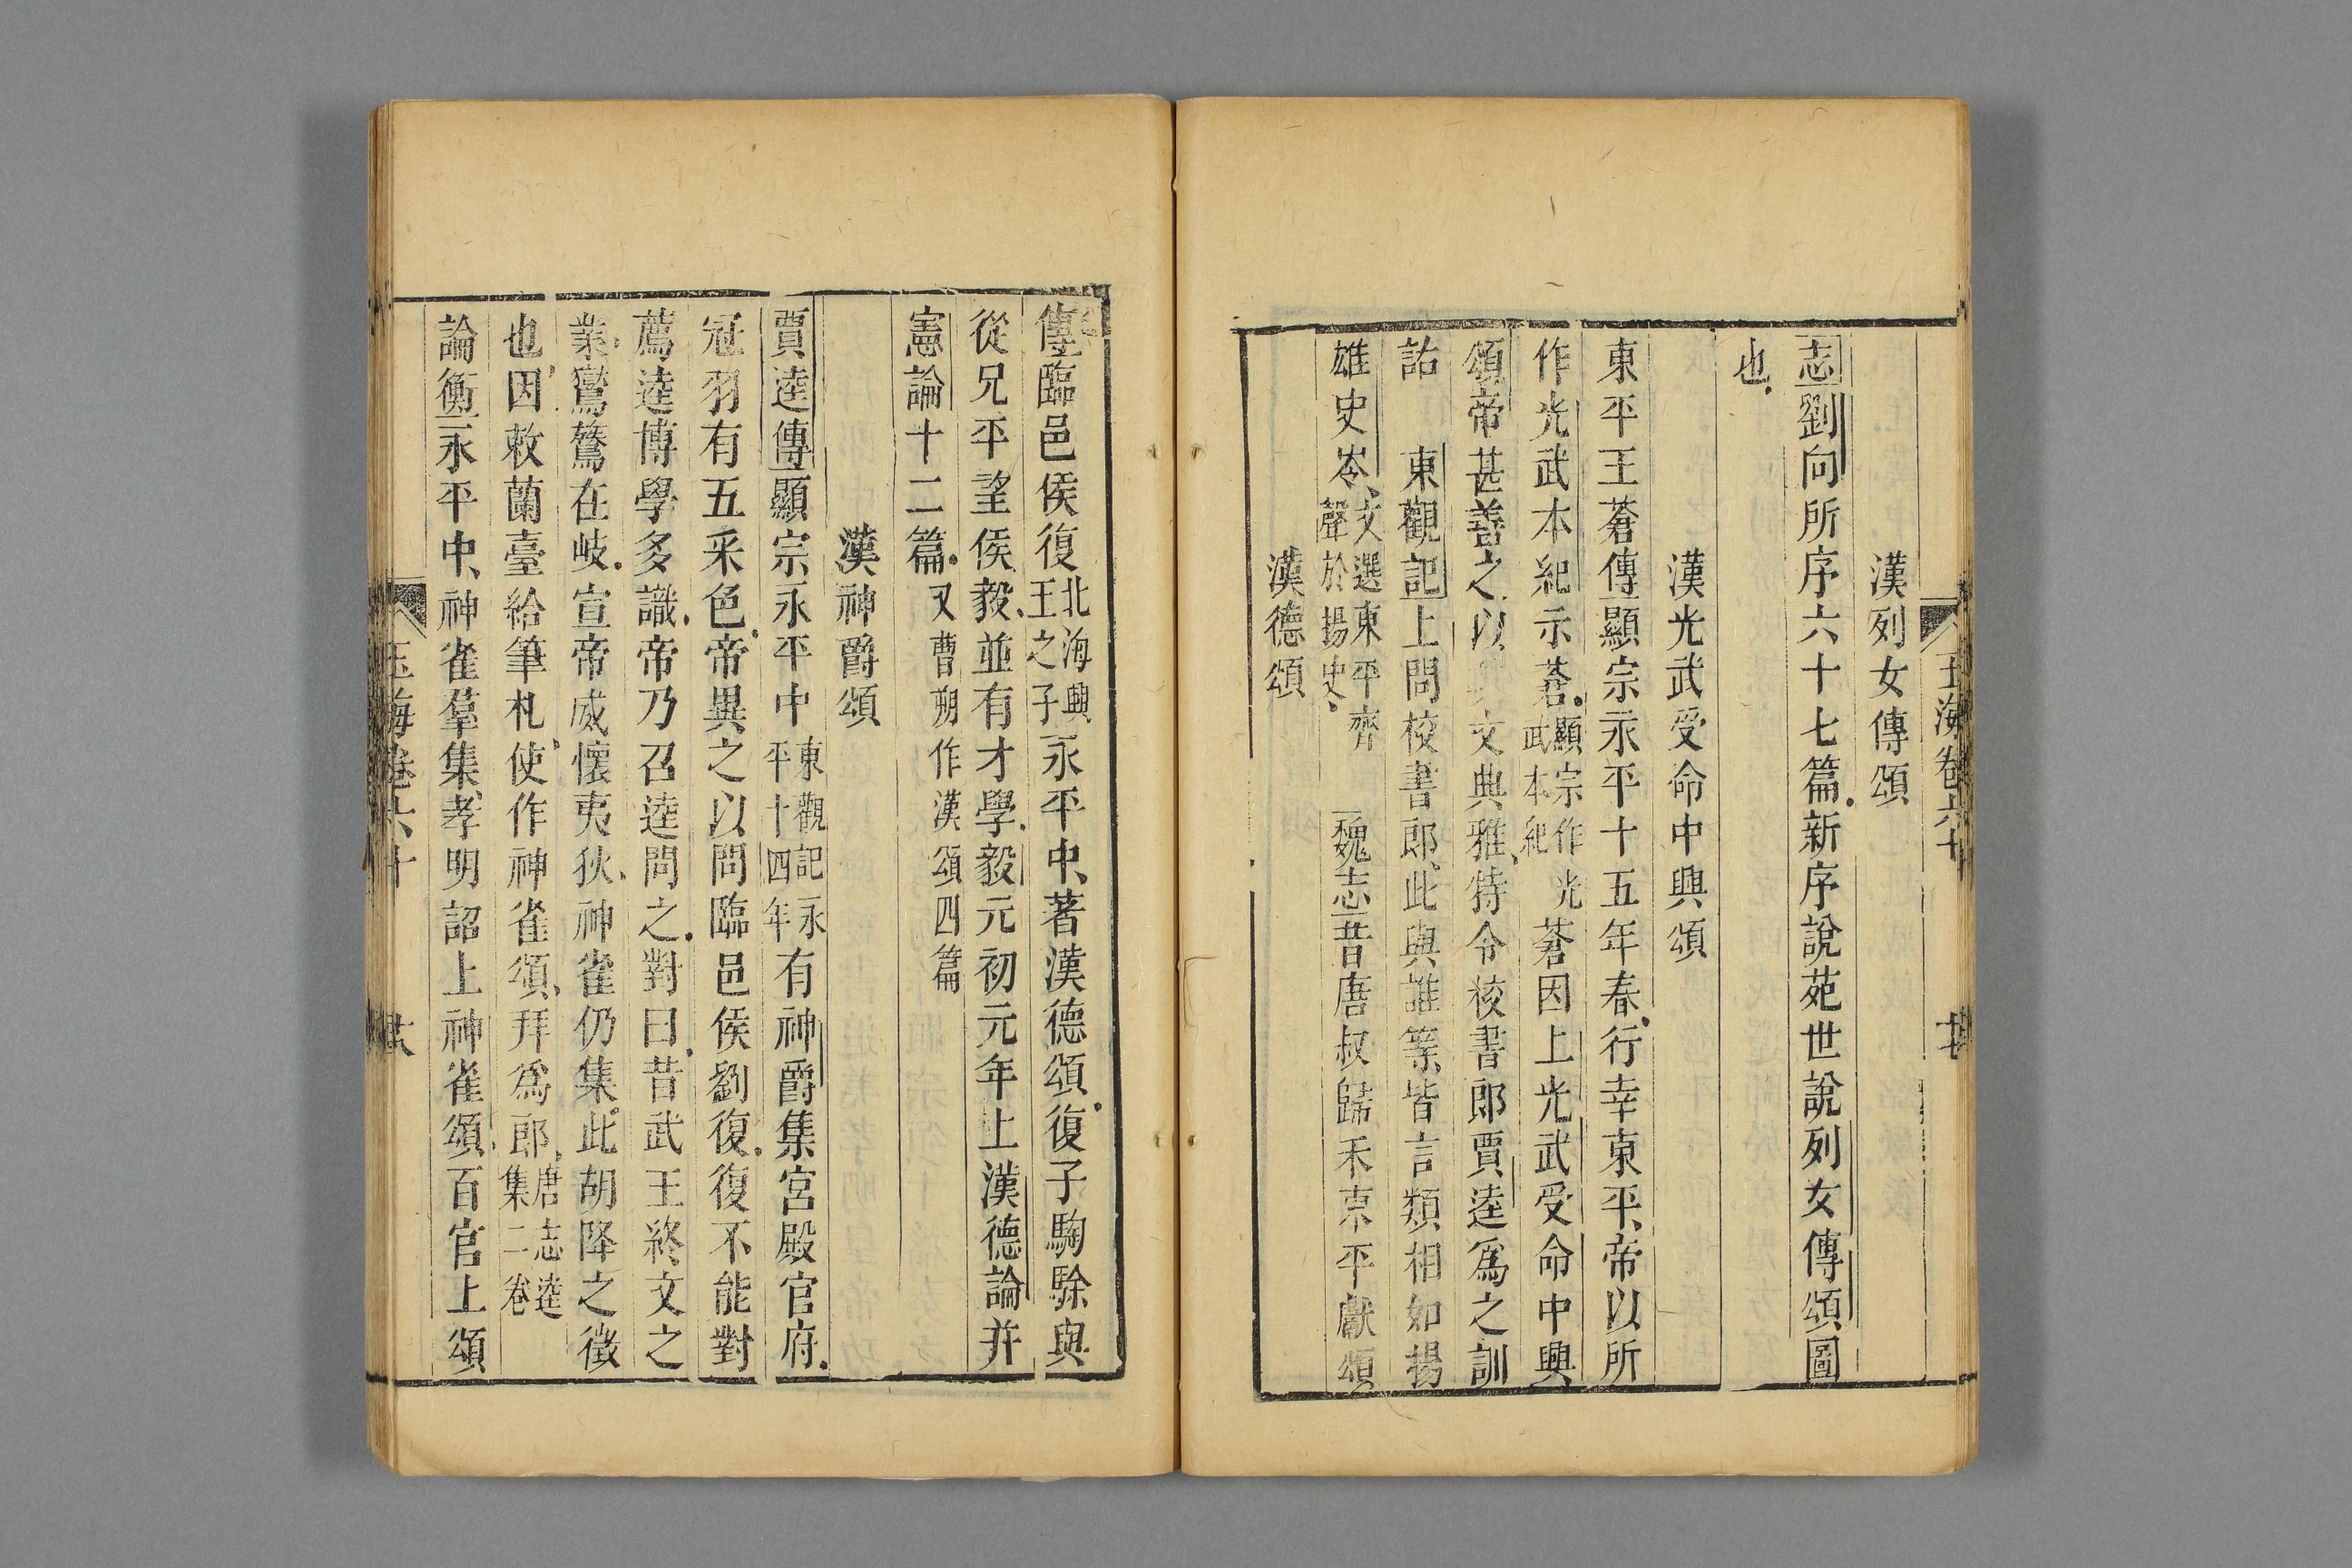 漢列女傳頌
志劉向所序六十七篇新序說苑世說列女傳頌圖
也
漢光武受命中興頌
東平王蒼傳顯宗永平十五年春行幸東平帝以所
作光武本紀示蒼顯宗作光武本紀蒼因上光武受命中興
頌帝甚善之以文典雅特令校書郎賈逵爲之訓
詁 東觀記上問校書郎此與誰等皆言類相如揚
雄史岑文選東平齊聲於揚史 魏志昔唐叔歸禾東平獻頌
漢德頌
玉海卷六十
傳臨邑侯復北海興王之子永平中著漢德頌復子騊駼與
從兄平望侯毅並有才學毅元初元年上漢德論并
憲論十二篇又曹朔作漢頌四篇
漢神爵頌
賈逵傳顯宗永平中東觀記永平十四年有神爵集宮殿官府
冠羽有五采色帝異之以問臨邑侯劉復復不能對
薦逵博學多識帝乃召逵問之對曰昔武王終文之
業鸑鷟在岐宣帝威懷夷狄神雀仍集此胡降之徵
也因敕蘭臺給筆札使作神雀頌拜爲郎唐志逵集二卷
論衡永平中神雀羣集孝明詔上神雀頌百官上頌
玉海卷六十